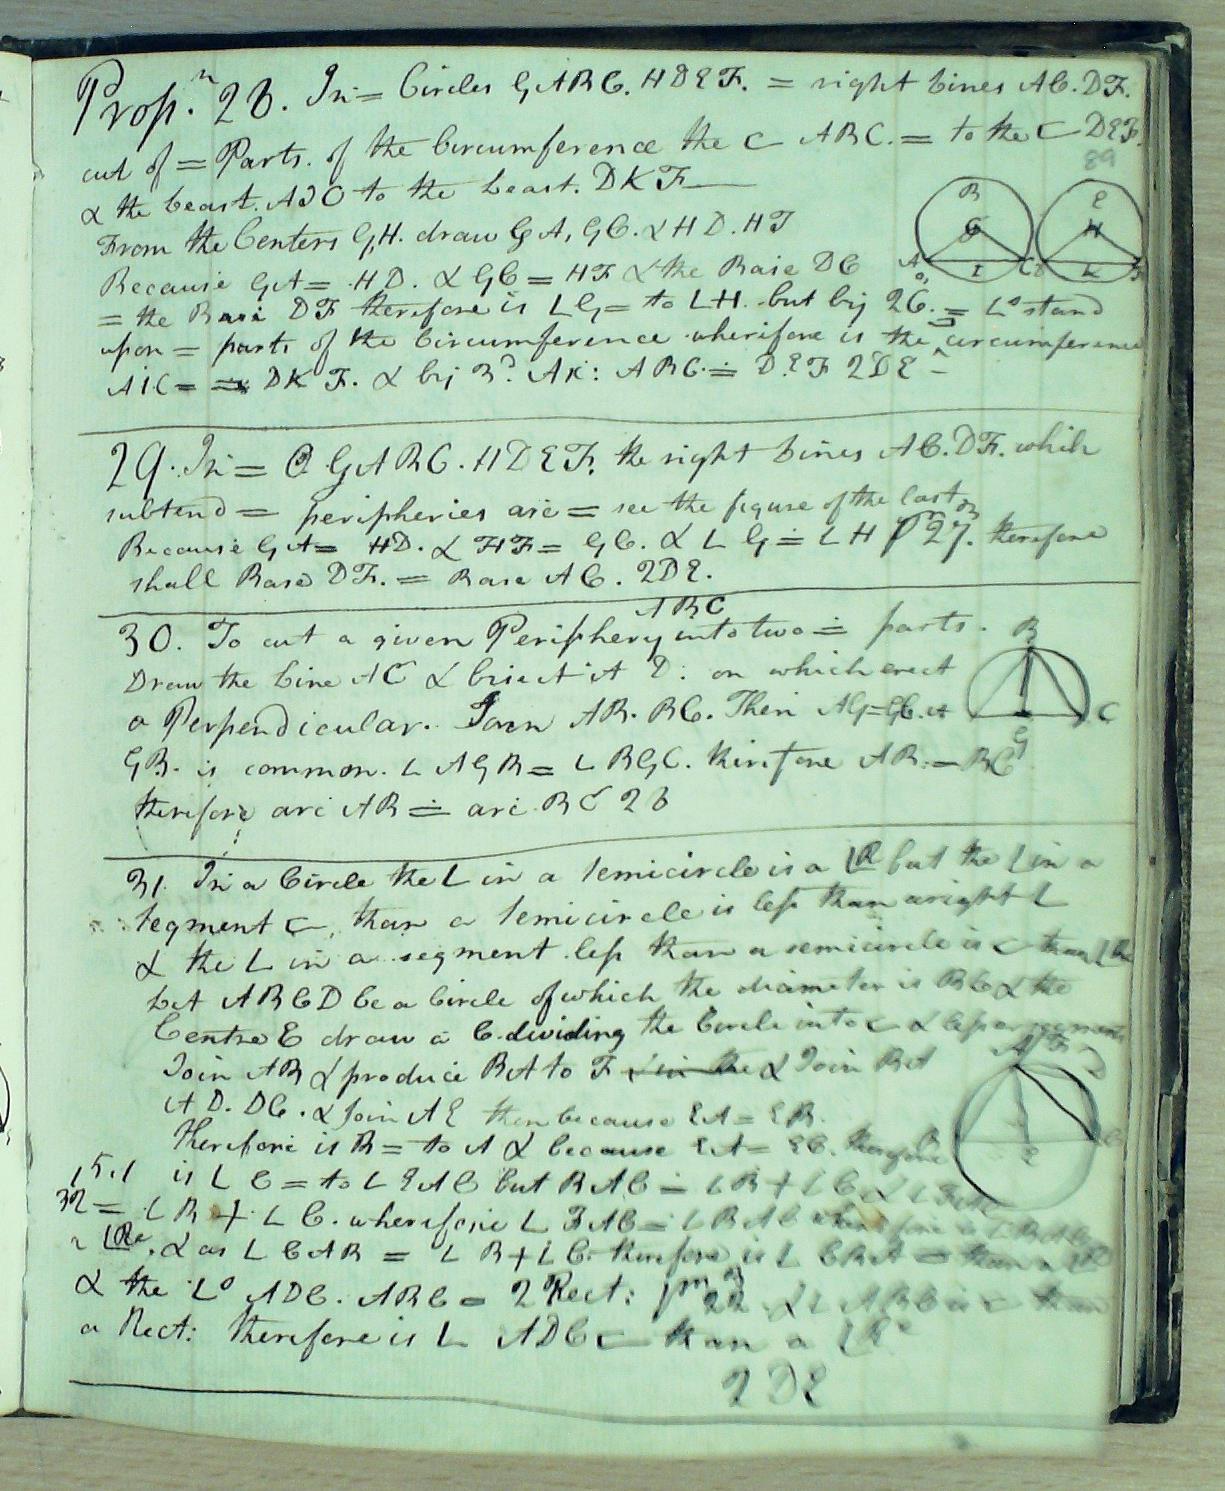 Prop.n 28. In = Circles GABC. HDEF. = right Lines AC. DF.
cut of = Parts. of the Circumference the ⊏ ABC. = to the ⊏ DEF.
89
& the Least. AIC to the Least. DKF
From the Centers GH. draw GA, GC. & HD. HF
Because GA = HD. & GC = HF & the Base DC
= the Base DF therefore is ∠G = to ∠H. but by 26. = ∠s stand
upon = parts of the Circumference wherefore is the circumference
AIC = DKF. & by 3d. Ax: ABC. = DEF QDE
29. In = O GABC. HDEF. the right Lines AC. DF. which
subtend = peripheries are = see the figure of the last
Because GA = HD. & HF = GC. & ∠G = ∠H Pn 27. therefore
shall Base DF. = Base AC. QDE.
30. To cut a given Periphery ABC into two = parts.
Draw the Line AC & bisect it on which erect
a Perpendicular. Join AB. BC. Then AG = GC. &
GB. is common. ∠AGB = ∠BGC. therefore AB. = BC
therefore arc AB = arc BC 28
31. In a Circle the ∠ in a Semicircle is a ∠R but the ∠ in a
Segment ⊏ than a Semicircle is less than a right ∠
& the ∠ in a segment less than a semicircle is ⊏ than ∠R
Let ABCD be a Circle of which the diameter is BC & the
Centre E draw a C. dividing the Circle into ⊏ & lesser segments
Join AB & produce BA to F & Join BA
AD. DC. & Join AE then because EA = EB.
Therefore is B = to A & because EA = EC. therefore
15.1 is ∠C = to ∠EAC but BAC = ∠B + ∠C & ∠FAC
32 = ∠B + ∠C. wherefore ∠FAC = ∠BAC wherefore is ∠BAC
a ∠R. & as ∠CAB = ∠B + ∠C therefore is ∠CBA than a ∠R
& the ∠s ADC. ABC = 2 Rect: 22 & ∠ABC is than
a Rect: therefore is ∠ADC ⊏ than a ∠R
QDE